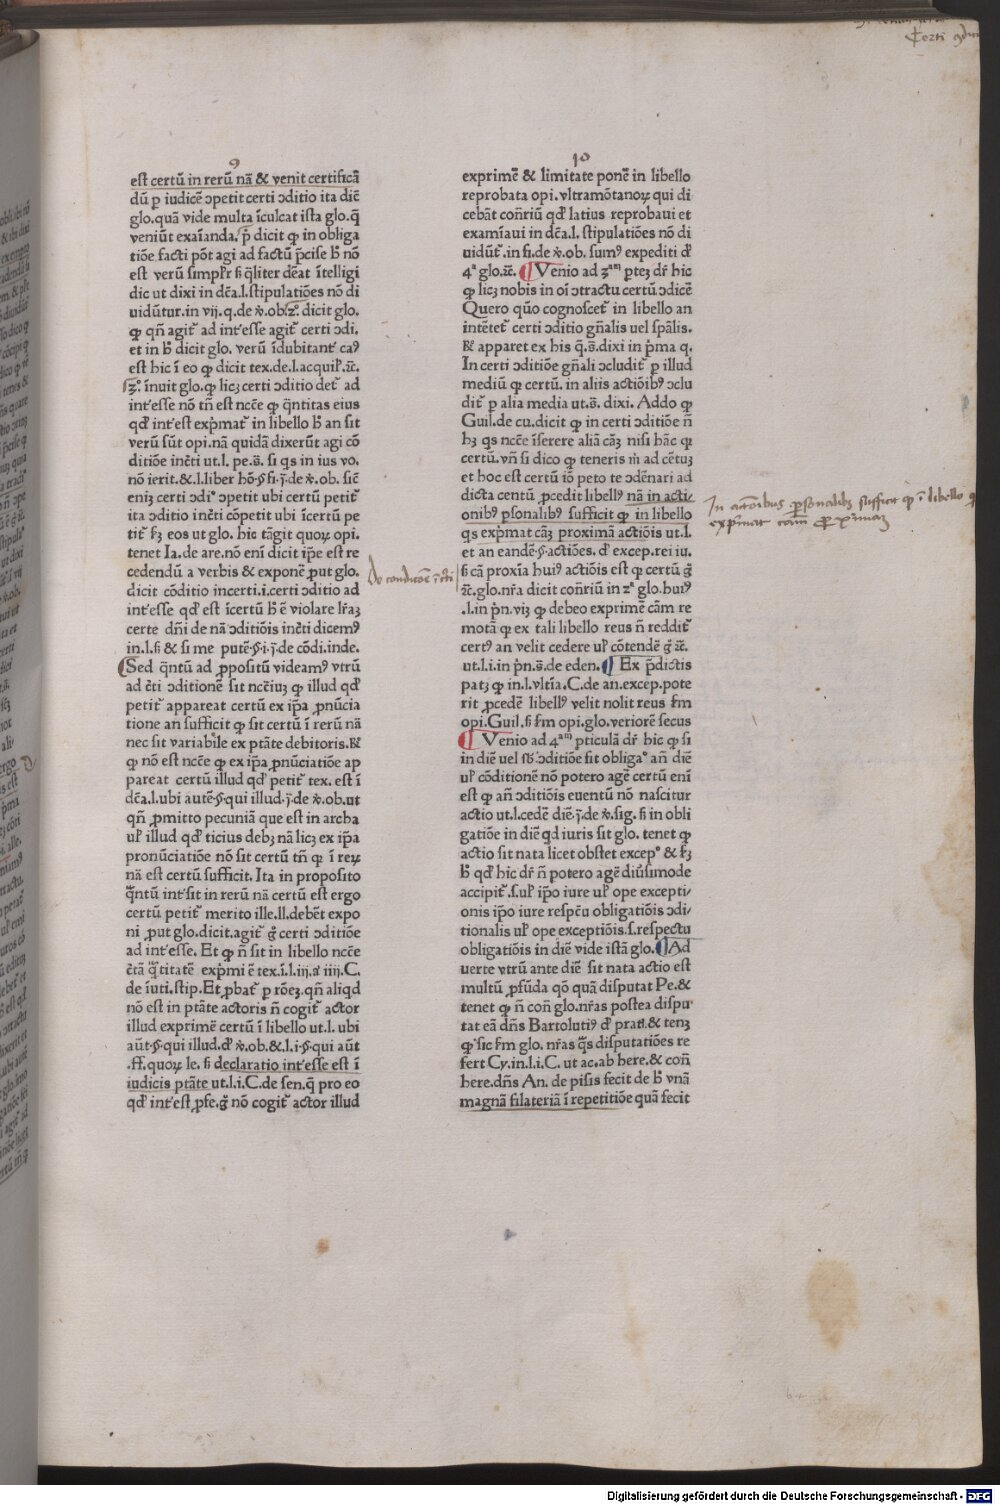 Certi
9
est certū in rerū nā & venit certificā
dū p iudicē ↄpetit certi ↄditio ita diē
glo. quā vide multa īculcat ista glo. q̄
veniūt exaīanda. p̄ dicit ꝙ in obliga
tiōe facti pōt agi ad factū p̄cise ꝧ nō
est verū simplr̄ ſꝫ q̄liter dēat ītelligi
dic ut dixi in dc̄a. l. stipulatiōes nō di
uidūtur. in vij. q. de ꝟ. ob. 2°. dicit glo.
ꝙ qn̄ agit̄ ad int̄esse agit̄ certi ↄdi.
et in ꝧ dicit glo. verū īdubitant̄ caꝰ
est hic ī eo ꝙ dicit tex. de. l. acquil̄. ⁊c̄.
3°. īnuit glo. ꝙ licꝫ certi ↄditio det̄ ad
int̄esse nō tn̄ est ncc̄e ꝙ q̄ntitas eius
qđ int̄est exp̄mat̄ in libello ꝧ an sit
verū sūt opi. nā quidā dixerūt agi cō
ditiōe inc̄ti ut. l. pe. s̄. si qs in ius vo.
nō ierit. &. l. liber hō. §. fi. j̄. de ꝟ. ob. sic̄
enīꝫ certi ↄdi° ↄpetit ubi certū petit̄
ita ↄditio inc̄ti cōpetit ubi īcertū pe
tit̄ ſꝫ eos ut glo. hic tāgit quoꝝ opi.
tenet Ia. de are. nō enī dicit ip̄e est re
cedendū a verbis & exponē ꝓut glo.
dicit cōditio incerti. i. certi ↄditio ad
int̄esse qđ est īcertū ꝧ ē violare lr̄aꝫ
certe dn̄i de nā ↄditiōis inc̄ti dicemꝰ
in. l. si & si me putē. §. i. j̄. de cōdi. inde.
Sed q̄ntū ad ꝓpositū videamꝰ vtrū
ad c̄ti ↄditionē sit ncc̄iuꝫ ꝙ illud qđ
petit̄ appareat certū ex ip̄a ꝓnūcia
tione an sufficit ꝙ sit certū ī rerū nā
nec sit variabile ex ptāte debitoris. ꝶ
ꝙ nō est ncc̄e ꝙ ex ip̄a ꝓnūciatiōe ap
pareat certū illud qđ petit̄ tex. est ī
dc̄a. l. ubi autē. §. qui illud. j̄. de ꝟ. ob. ut
qn̄ ꝓmitto pecuniā que est in archa
ul̄ illud qđ ticius debꝫ nā licꝫ ex ip̄a
pronūciatiōe nō sit certū tn̄ ꝙ ī reꝝ
nā est certū sufficit. Ita in proposito
q̄ntū int̄sit in rerū nā certū est ergo
certū petit̄ merito ille. ll. debēt expo
ni ꝓut glo. dicit. agit̄ ḡ certi ↄditiōe
ad int̄esse. Et ꝙ n̄ sit in libello ncc̄e
c̄tā q̄titatē exp̄mi ē tex. ī. l. iij. &. iiij. C.
de īuti. stip. Et ꝓbat̄ p rōeꝫ. qn̄ aliqđ
nō est in ptāte actoris n̄ cogit̄ actor
illud exprimē certū ī libello ut. l. ubi
aūt. §. qui illud. đ ꝟ. ob. & l. i. §. qui aūt
.ff. quoꝝ le. ſꝫ declaratio int̄esse est ī
iudicis ptāte ut. l. i. C. de sen. q̄ pro eo
qđ int̄est ꝓfe. ḡ nō cogit̄ actor illud
10
exprimē & limitate ponē in libello
reprobata opi. vltramōtanoꝝ qui di
cebāt cōn̄riū qđ latius reprobaui et
examīaui in dc̄a. l. stipulatiōes nō di
uidūt̄. in fi. de ꝟ. ob. sumꝰ expediti đ
4ᵃ glo. ⁊c̄. ¶ Venio ad 3ᵃᵐ pteꝫ dr̄ hic
ꝙ licꝫ nobis in oī ↄtractu certū ↄdicē
Quero quō cognoscet̄ in libello an
intētet̄ certi ↄditio gn̄alis uel sp̄alis.
ꝶ apparet ex his q̄. s̄. dixi in p̄ma q.
In certi ↄditiōe gn̄ali ↄcludit̄ p illud
mediū ꝙ certū. in aliis actiōibꝰ ↄclu
dit̄ p alia media ut. s̄. dixi. Addo ꝙ
Guil. de cu. dicit ꝙ in certi ↄditiōe n̄
hꝫ qs ncc̄e īserere aliā cāꝫ nisi hāc ꝙ
certū. vn̄ si dico ꝙ teneris m̄ ad cētuꝫ
et hoc est certū iō peto te ↄdēnari ad
dicta centū ꝓcedit libellꝰ nā in acti
onibꝰ ꝑsonalibꝰ sufficit ꝙ in libello
qs exp̄mat cāꝫ proximā actiōis ut. l.
et an eandē. §. actiōes. đ excep. rei iu.
ſꝫ cā proxīa huiꝰ actiōis est ꝙ certū ḡ
⁊c̄. glo. nr̄a dicit cōn̄riū in 2ᵃ glo. huiꝰ
. l. in p̄n. viꝫ ꝙ debeo exprimē cām re
motā ꝙ ex tali libello reus n̄ reddit̄
certꝰ an velit cedere ul̄ cōtendē ḡ ⁊c̄.
ut. l. i. in p̄n. s̄. de eden. ¶ Ex p̄dictis
patꝫ ꝙ in. l. vltīa. C. de an. excep. pote
rit ꝓcedē libellꝰ velit nolit reus ẜm
opi. Guil. ſꝫ ẜm opi. glo. veriorē secus
¶ Venio ad 4ᵃᵐ pticulā dr̄ hic ꝙ si
in diē uel sb̄ ↄditiōe sit obliga° an̄ diē
ul̄ cōditionē nō potero agē certū enī
est ꝙ an̄ ↄditiōis euentū nō nascitur
actio ut. l. cedē diē. j̄. de ꝟ. sig. ſꝫ in obli
gatiōe in diē qđ iuris sit glo. tenet ꝙ
actio sit nata licet obstet excep° & ſꝫ
ꝧ qđ hic dr̄ n̄ potero agē diūsimode
accipit̄. s. ul̄ ip̄o iure ul̄ ope excepti⸗
onis ip̄o iure respc̄u obligatiōis ↄdi⸗
tionalis ul̄ ope exceptiōis. s. respectu
obligatiōis in diē vide istā glo. ¶ Ad
uerte vtrū ante diē sit nata actio est
multū ꝓfūda qō quā disputat Pe. &
tenet ꝙ n̄ con̄ glo. nr̄as postea dispu
tat eā dn̄s Bartolutiꝰ đ prat̄. & tenꝫ
ꝙ sic ẜm glo. nr̄as q̄s disputatiōes re
fert Cy. in. l. i. C. ut ac. ab here. & con̄
here. dn̄s An. de pisis fecit de ꝧ vnā
magnā filateriā ī repetitiōe quā fecit
De condicōe īc̄ti
In actōibus ꝑsonalibꝫ sufficit ꝙ ī libello
exp̄mat̄ cām ꝓximaꝫ
Digitalisierung gefördert durch die Deutsche Forschungsgemeinschaft - DFG